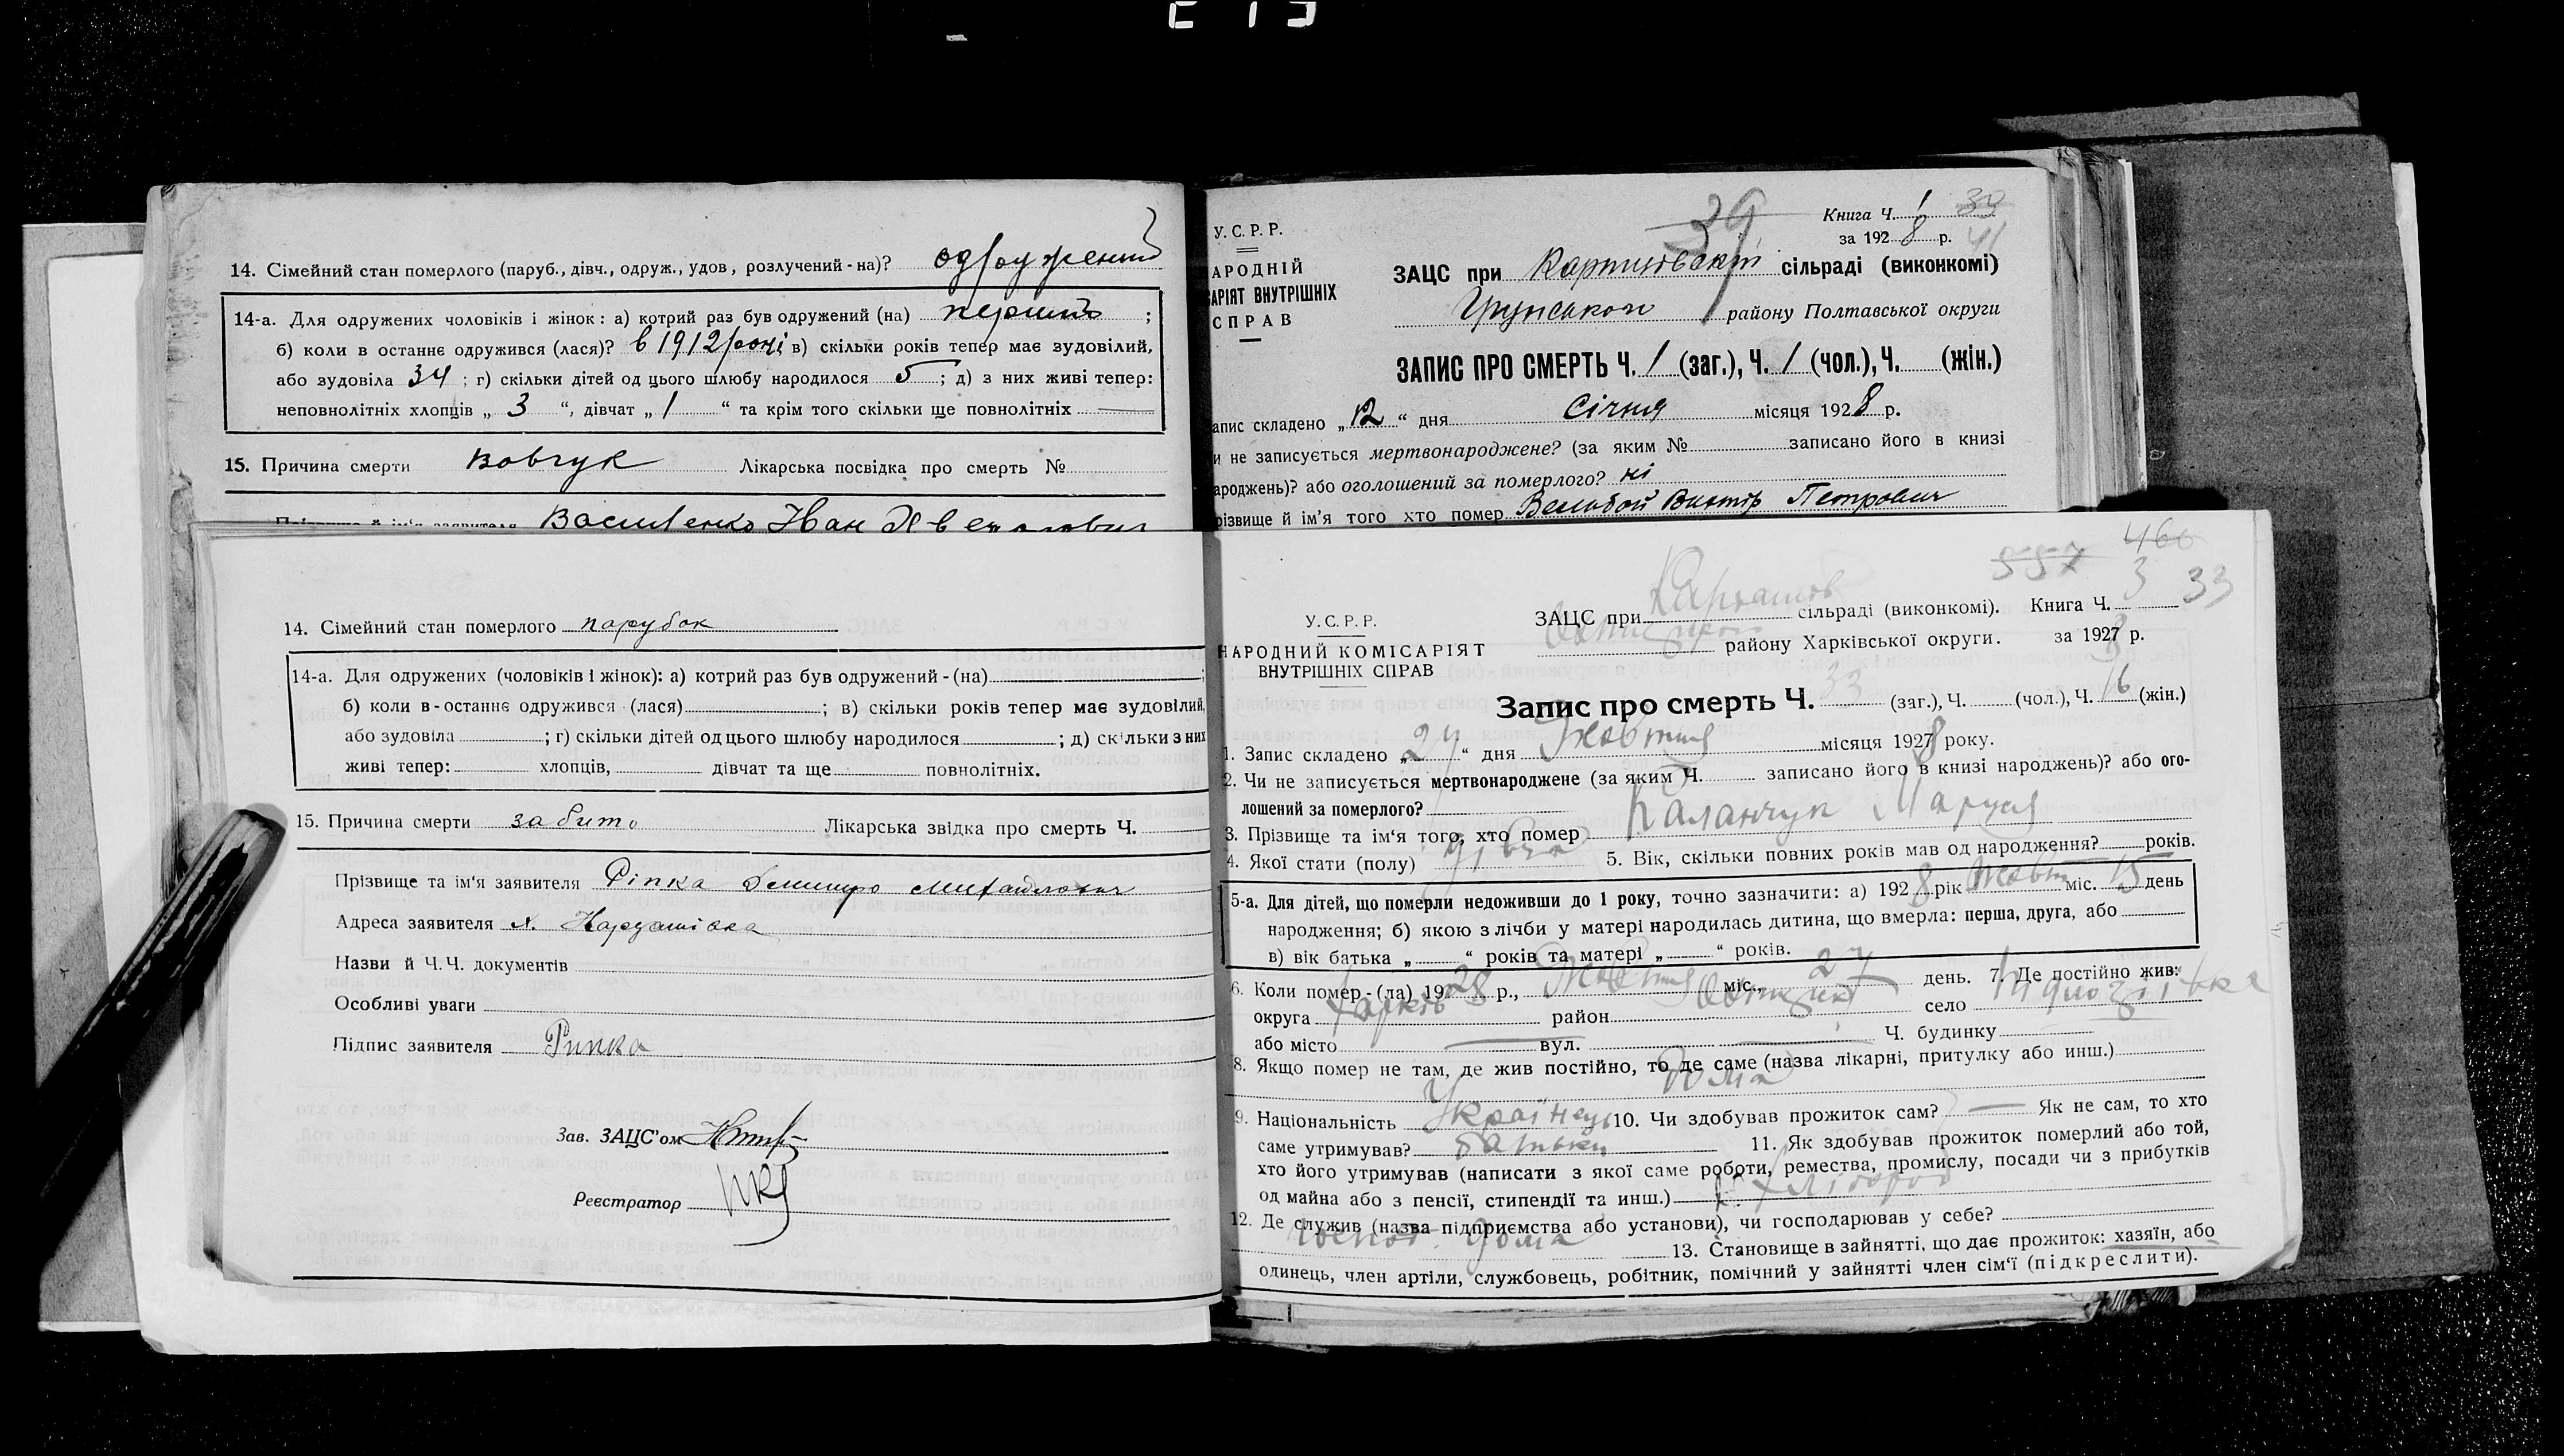 14. Сімейний стан померлого (паруб., дівч., одруж., удов, розлучений-на)? одружений
14-а. Для одружених чоловіків і жінок: а) котрий раз був одружений (на) перший ;
б) коли в останнє одружився (лася)? в 1912 році в) скільки років тепер має зудовілий,
або зудовіла 34 ; г) скільки дітей од цього шлюбу народилося 5 ; д) з них живі тепер:
неповнолітніх хлопців „ 3 “, дівчат „ 1 “ та крім того скільки ще повнолітніх
15. Причина смерти вовчук Лікарська посвідка про смерть №
Василенко Іван
39
Книга Ч. 1 39
за 192 8 р. 41
У. С. Р. Р.
АРОДНІЙ
АРІЯТ ВНУТРІШНІХ
СПРАВ
ЗАЦС при сільраді (виконкомі)
Грунського району Полтавської округи
ЗАПИС ПРО СМЕРТЬ Ч. 1 (заг.), Ч. 1 (чол.), Ч. (жін.)
апис складено „ 12 “ дня Січня місяця 192 8 р.
и не записується мертвонароджене? (за яким № записано його в книзі
ароджень)? або оголошений за померлого? ні
різвище й ім'я того хто помер Віктір Петрович
14. Сімейний стан померлого парубок
14-а. Для одружених (чоловіків і жінок): а) котрий раз був одружений-(на) ;
б) коли в-останнє одружився (лася) ; в) скільки років тепер має зудовілий,
або зудовіла ; г) скільки дітей од цього шлюбу народилося ; д) скільки з них
живі тепер: хлопців, дівчат та ще повнолітніх.
15. Причина смерти забито Лікарська звідка про смерть Ч.
Прізвище та ім'я заявителя Ріпка Дмитро Михайлович
Адреса заявителя х. Кардашівка
Назви й Ч.Ч. документів
Особливі уваги
Підпис заявителя Рипка
Зав. ЗАЦС'ом
Реєстратор
557 466
3 33
У. С. Р. Р.
НАРОДНИЙ КОМІСАРІЯТ
ВНУТРІШНІХ СПРАВ
ЗАЦС при Кардашів сільраді (виконкомі). Книга Ч.
Охтирськ району Харківської округи. за 1927 8 р.
Запис про смерть Ч. 33 (заг.), Ч. (чол.), Ч. 16 (жін.)
1. Запис складено „ 27 “ дня Жовтня місяця 1927 8 року.
2. Чи не записується мертвонароджене (за яким Ч. записано його в книзі народжень)? або ого-
лошений за померлого?
3. Прізвище та ім'я того, хто помер Каланчук Маруся
4. Якої стати (полу) дівча 5. Вік, скільки повних років мав од народження? років.
5-а. Для дітей, що померли недоживши до 1 року, точно зазначити: а) 192 8 рік Жовтн міс. 15 день
народження; б) якою з лічби у матері народилась дитина, що вмерла: перша, друга, або
в) вік батька „ “ років та матері „ “ років.
6. Коли помер-(ла) 19 28 р., Жовтня міс., 27 день. 7. Де постійно жив:
округа Харків район Охтирка село
або місто вул. Ч. будинку
8. Якщо помер не там, де жив постійно, то де саме (назва лікарні, притулку або инш.)
Дома
9. Національність Українець 10. Чи здобував прожиток сам? — Як не сам, то хто
саме утримував? батьки 11. Як здобував прожиток померлий або той,
хто його утримував (написати з якої саме роботи, ремества, промислу, посади чи з прибутків
од майна або з пенсії, стипендії та инш.) хлібороб
12. Де служив (назва підприємства або установи), чи господарював у себе?
дома 13. Становище в зайнятті, що дає прожиток: хазяїн, або
одинець, член артіли, службовець, робітник, помічний у зайнятті член сім'ї (підкреслити).